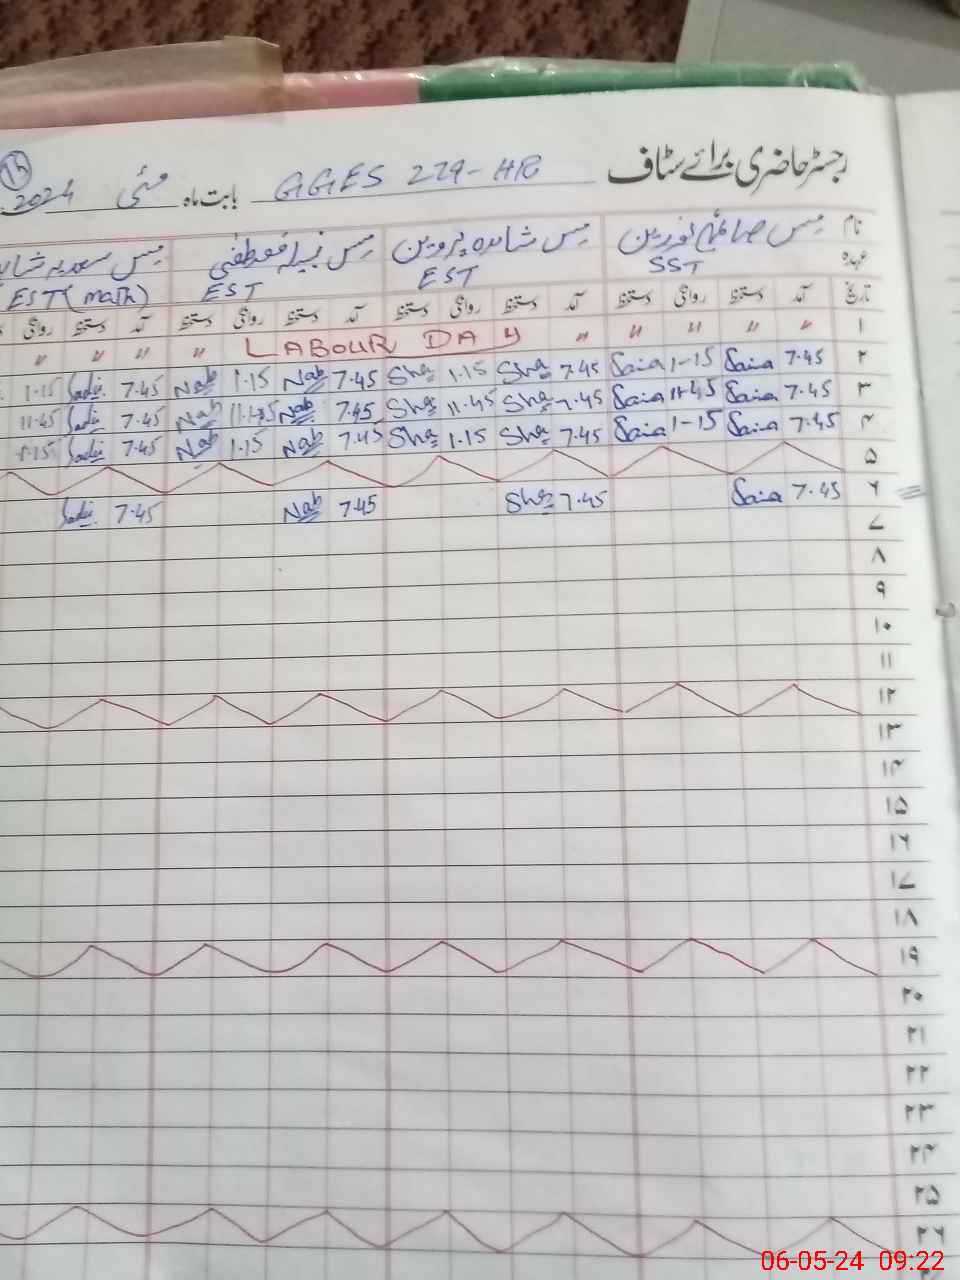 رجسٹر حاضری برائے سٹاف
GGES 229-HR بابت ماہ مئی 2024
نام مس صائمہ نورین مس شاہدہ پروین مس نبیلہ مس سعدیہ
عہدہ SST EST EST EST (math)
تاریخ آمد دستخط روانگی دستخط آمد دستخط روانگی دستخط آمد دستخط روانگی دستخط آمد دستخط روانگی
۱ " " " " " LABOUR DAY " " " "
۲ 7.45 Saia 1-15 Saia 7.45 Sha 1.15 Sha 7.45 Nab 1.15 Nab 7.45 Sadi 1.15
۳ 7.45 Saia 11-45 Saia 7.45 Sha 11.45 Sha 7.45 Nab 11.45 Nab 7.45 Sadi 11.45
۴ 7.45 Saia 1-15 Saia 7.45 Sha 1.15 Sha 7.45 Nab 1.15 Nab 7.45 Sadi 1.15
۵
۶ 7.45 Saia 7.45 Sha 7.45 Nab 7.45 Sadi
۷
۸
۹
۱۰
۱۱
۱۲
۱۳
۱۴
۱۵
۱۶
۱۷
۱۸
۱۹
۲۰
۲۱
۲۲
۲۳
۲۴
۲۵
۲۶
06-05-24 09:22